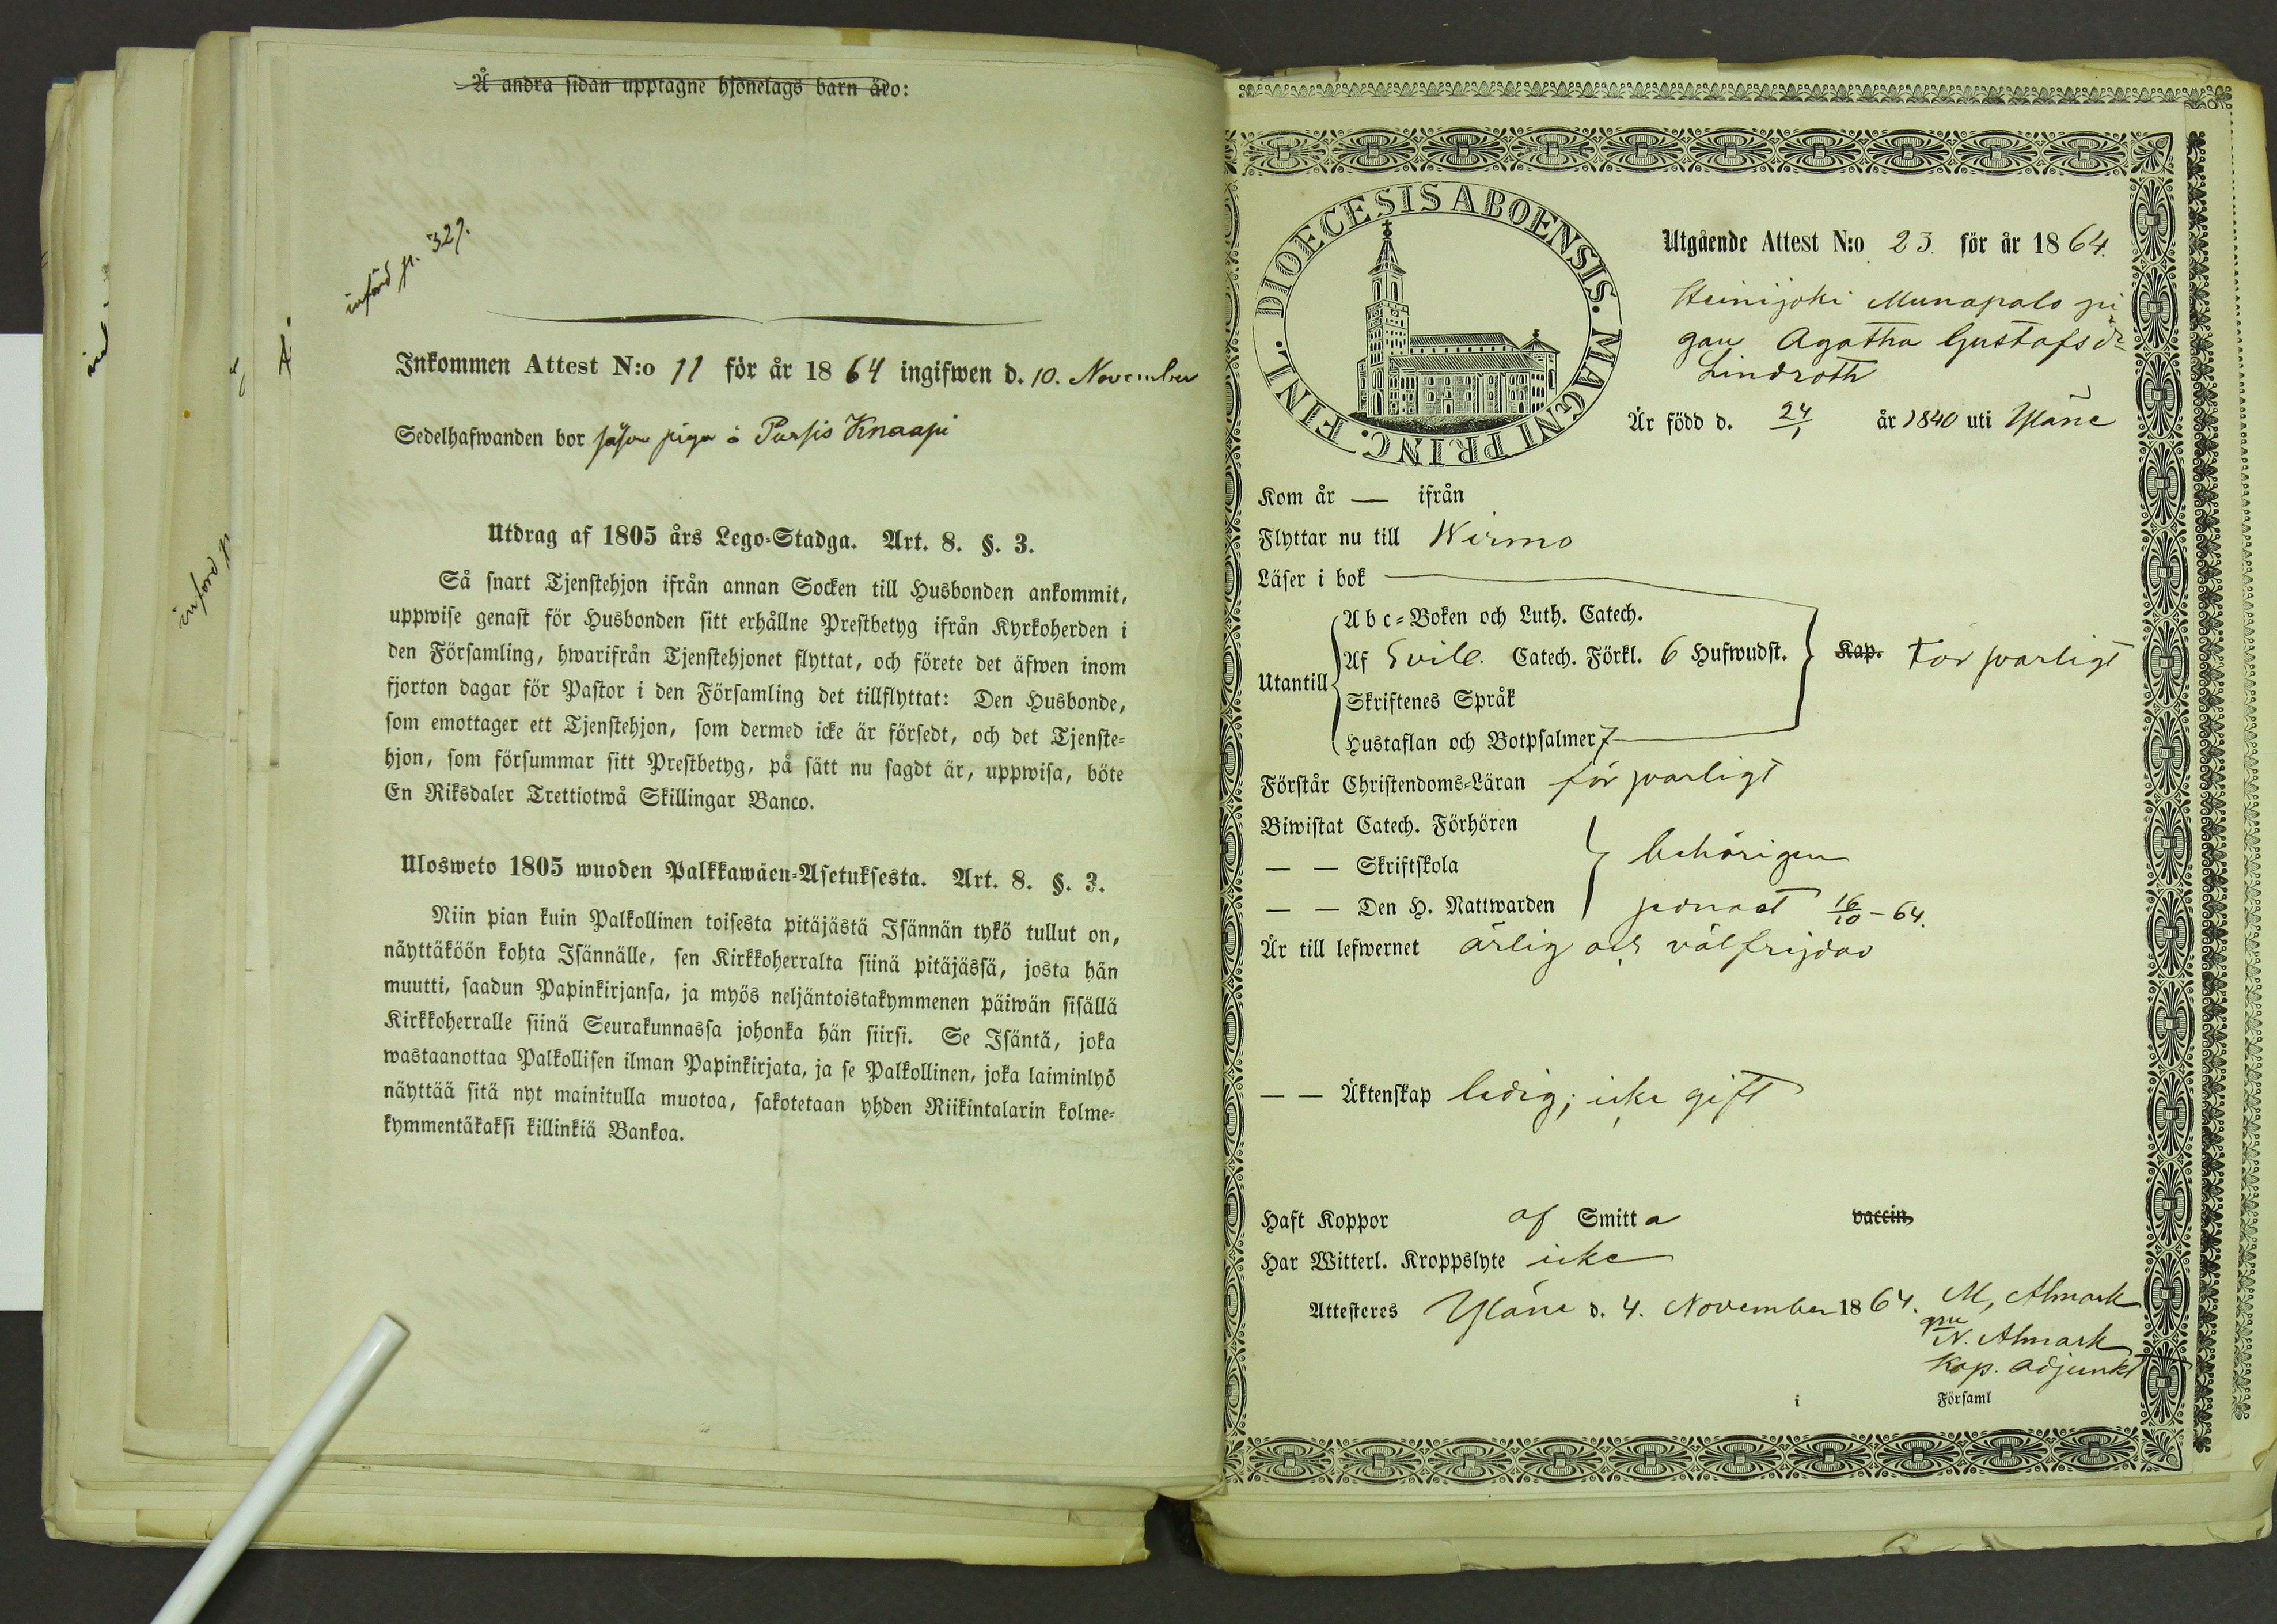 Å andra sidan upptagne hjonelags barn äro:
införd p. 327.
Inkommen Attest N:o 11 för år 1864 ingifwen d. 10. November
Sedelhafwanden bor såsom piga å Pursis Knaapi
Utdrag af 1805 års Lego-Stadga. Art. 8. §. 3.
Så snart Tjenstehjon ifrån annan Socken till Husbonden ankommit,
uppwise genast för Husbonden sitt erhållne Prestbetyg ifrån Kyrkoherden i
den Församling, hwarifrån Tjenstehjonet flyttat, och förete det äfwen inom
fjorton dagar för Pastor i den Församling det tillflyttat: Den Husbonde,
som emottager ett Tjenstehjon, som dermed icke är försedt, och det Tjenste-
hjon, som försummar sitt Prestbetyg, på sätt nu sagdt är, uppwisa, böte
En Riksdaler Trettiotwå Skillingar Banco.
Ulosweto 1805 wuoden Palkkawäen-Asetuksesta. Art. 8. §. 3.
Niin pian kuin Palkollinen toisesta pitäjästä Isännän tykö tullut on,
näyttäköön kohta Isännälle, sen Kirkkoherralta siinä pitäjässä, josta hän
muutti, saadun Papinkirjansa, ja myös neljäntoistakymmenen päiwän sisällä
Kirkkoherralle siinä Seurakunnassa johonka hän siirsi. Se Isäntä, joka
wastaanottaa Palkollisen ilman Papinkirjata, ja se Palkollinen, joka laiminlyö
näyttää sitä nyt mainitulla muotoa, sakotetaan yhden Riikintalarin kolme-
kymmentäkaksi killinkiä Bankoa.
införd p
DIOECESIS ABOENSIS. MAGNI PRINC. FINL.
Utgående Attest N:o 23. för år 1864.
Heinijoki Munapalo pi
gan Agatha Gustafsdr
Lindroth
Är född d. 24/1 år 1840 uti Yläne
Kom år — ifrån
Flyttar nu till Wirmo
Läser i bok
Utantill
Abc-Boken och Luth. Catech.
Af Svib. Catech. Förkl. 6 Hufwudst.
Kap. Försvarligt
Skriftenes Språk
Hustaflan och Botpsalmer 7
Förstår Christendoms-Läran försvarligt
Biwistat Catech. Förhören
— — Skriftskola
behörigen
— — Den H. Nattwarden senast 16/10 - 64.
Är till lefwernet ärlig och välfrejdad
— — Äktenskap ledig; icke gift
Haft Koppor af Smitta vaccin.
Har Witterl. Kroppslyte icke
Attesteres Yläne d. 4. November 1864. M, Almark
gm
N. Almark
Kap. adjunkt
i Församl